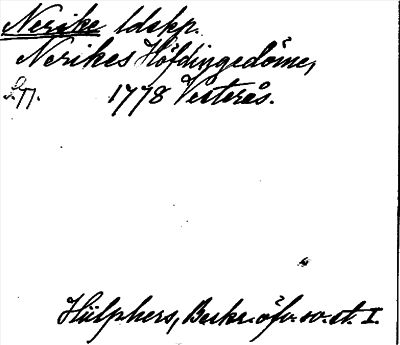 Nerike ldskp.
Nerikes Höfdingedöme,
s. 77. 1778 Vesterås.
Hülphers, Beskr. öfv. sv. st. I.